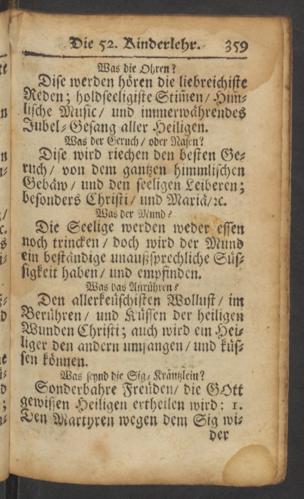 Die 52. Kinderlehr. 359
Was die Ohren?
Dise werden hören die liebreichiste
Reden; holdseeligiste Stimen/ Him-
lische Music/ und immerwährendes
Jubel-Gesang aller Heiligen.
Was der Geruch/ oder Nasen?
Dise wird riechen den besten Ge-
ruch/ von dem gantzen himmlischen
Gebäw/ und den seeligen Leiberen;
besonders Christi/ und Mariä/ꝛc.
Was der Mund?
Die Seelige werden weder essen
noch trincken/ doch wird der Mund
ein beständige unaußsprechliche Süs-
sigkeit haben/ und empfinden.
Was das Anrühren?
Den allerkeüschisten Wollust/ im
Berühren/ und Küssen der heiligen
Wunden Christi; auch wird ein Hei-
liger den andern umfangen/ und küs-
sen können.
Was seynd die Sig-Kräntzlein?
Sonderbahre Freüden/ die GOtt
gewissen Heiligen ertheilen wird: 1.
Den Martyren wegen dem Sig wi-
der